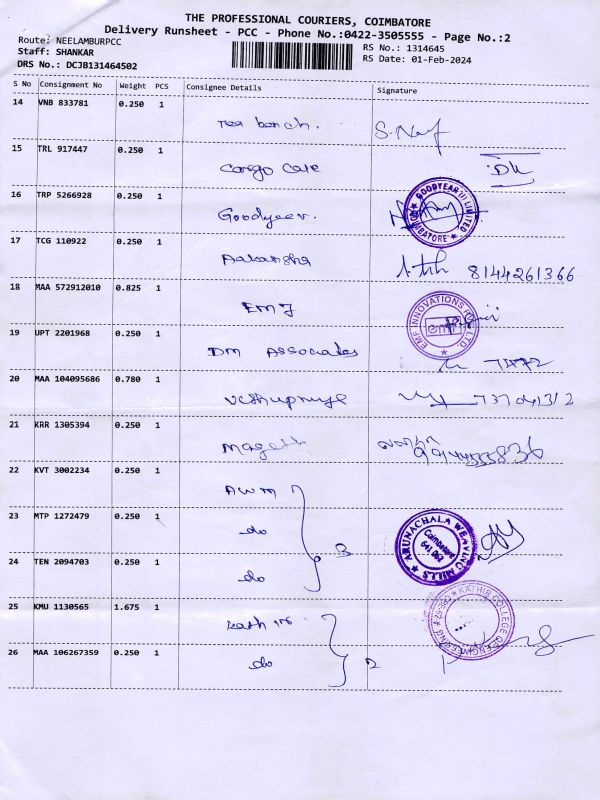 THE PROFESSIONAL COURIERS, COIMBATORE
Delivery Runsheet - PCC - Phone No.:0422-3505555 - Page No.:2
Route: NEELAMBURPCC
RS No.: 1314645
Staff: SHANKAR
RS Date: 01-Feb-2024
DRS No.: DCJB131464502
S No Consignment No Weight PCS Consignee Details Signature
14 VNB 833781 0.250 1
Tea bench.
15 TRL 917447 0.250 1
Cargo Care
16 TRP 5266928 0.250 1
Goodyeer.
GOODYEAR LIMITED COIMBATORE
17 TCG 110922 0.250 1
Aakansha 8144261366
18 MAA 572912010 0.825 1
EMF
EMF INNOVATIONS LTD. emf
19 UPT 2201968 0.250 1
DM Associates
20 MAA 104095686 0.780 1
21 KRR 1305394 0.250 1
22 KVT 3002234 0.250 1
AWM
23 MTP 1272479 0.250 1
do
3
ARUNACHALA WEAVING MILLS Coimbatore 641 062
24 TEN 2094703 0.250 1
do
25 KMU 1130565 1.675 1
Kathir
KATHIR COLLEGE OF ENGINEERING
26 MAA 106267359 0.250 1
do
2